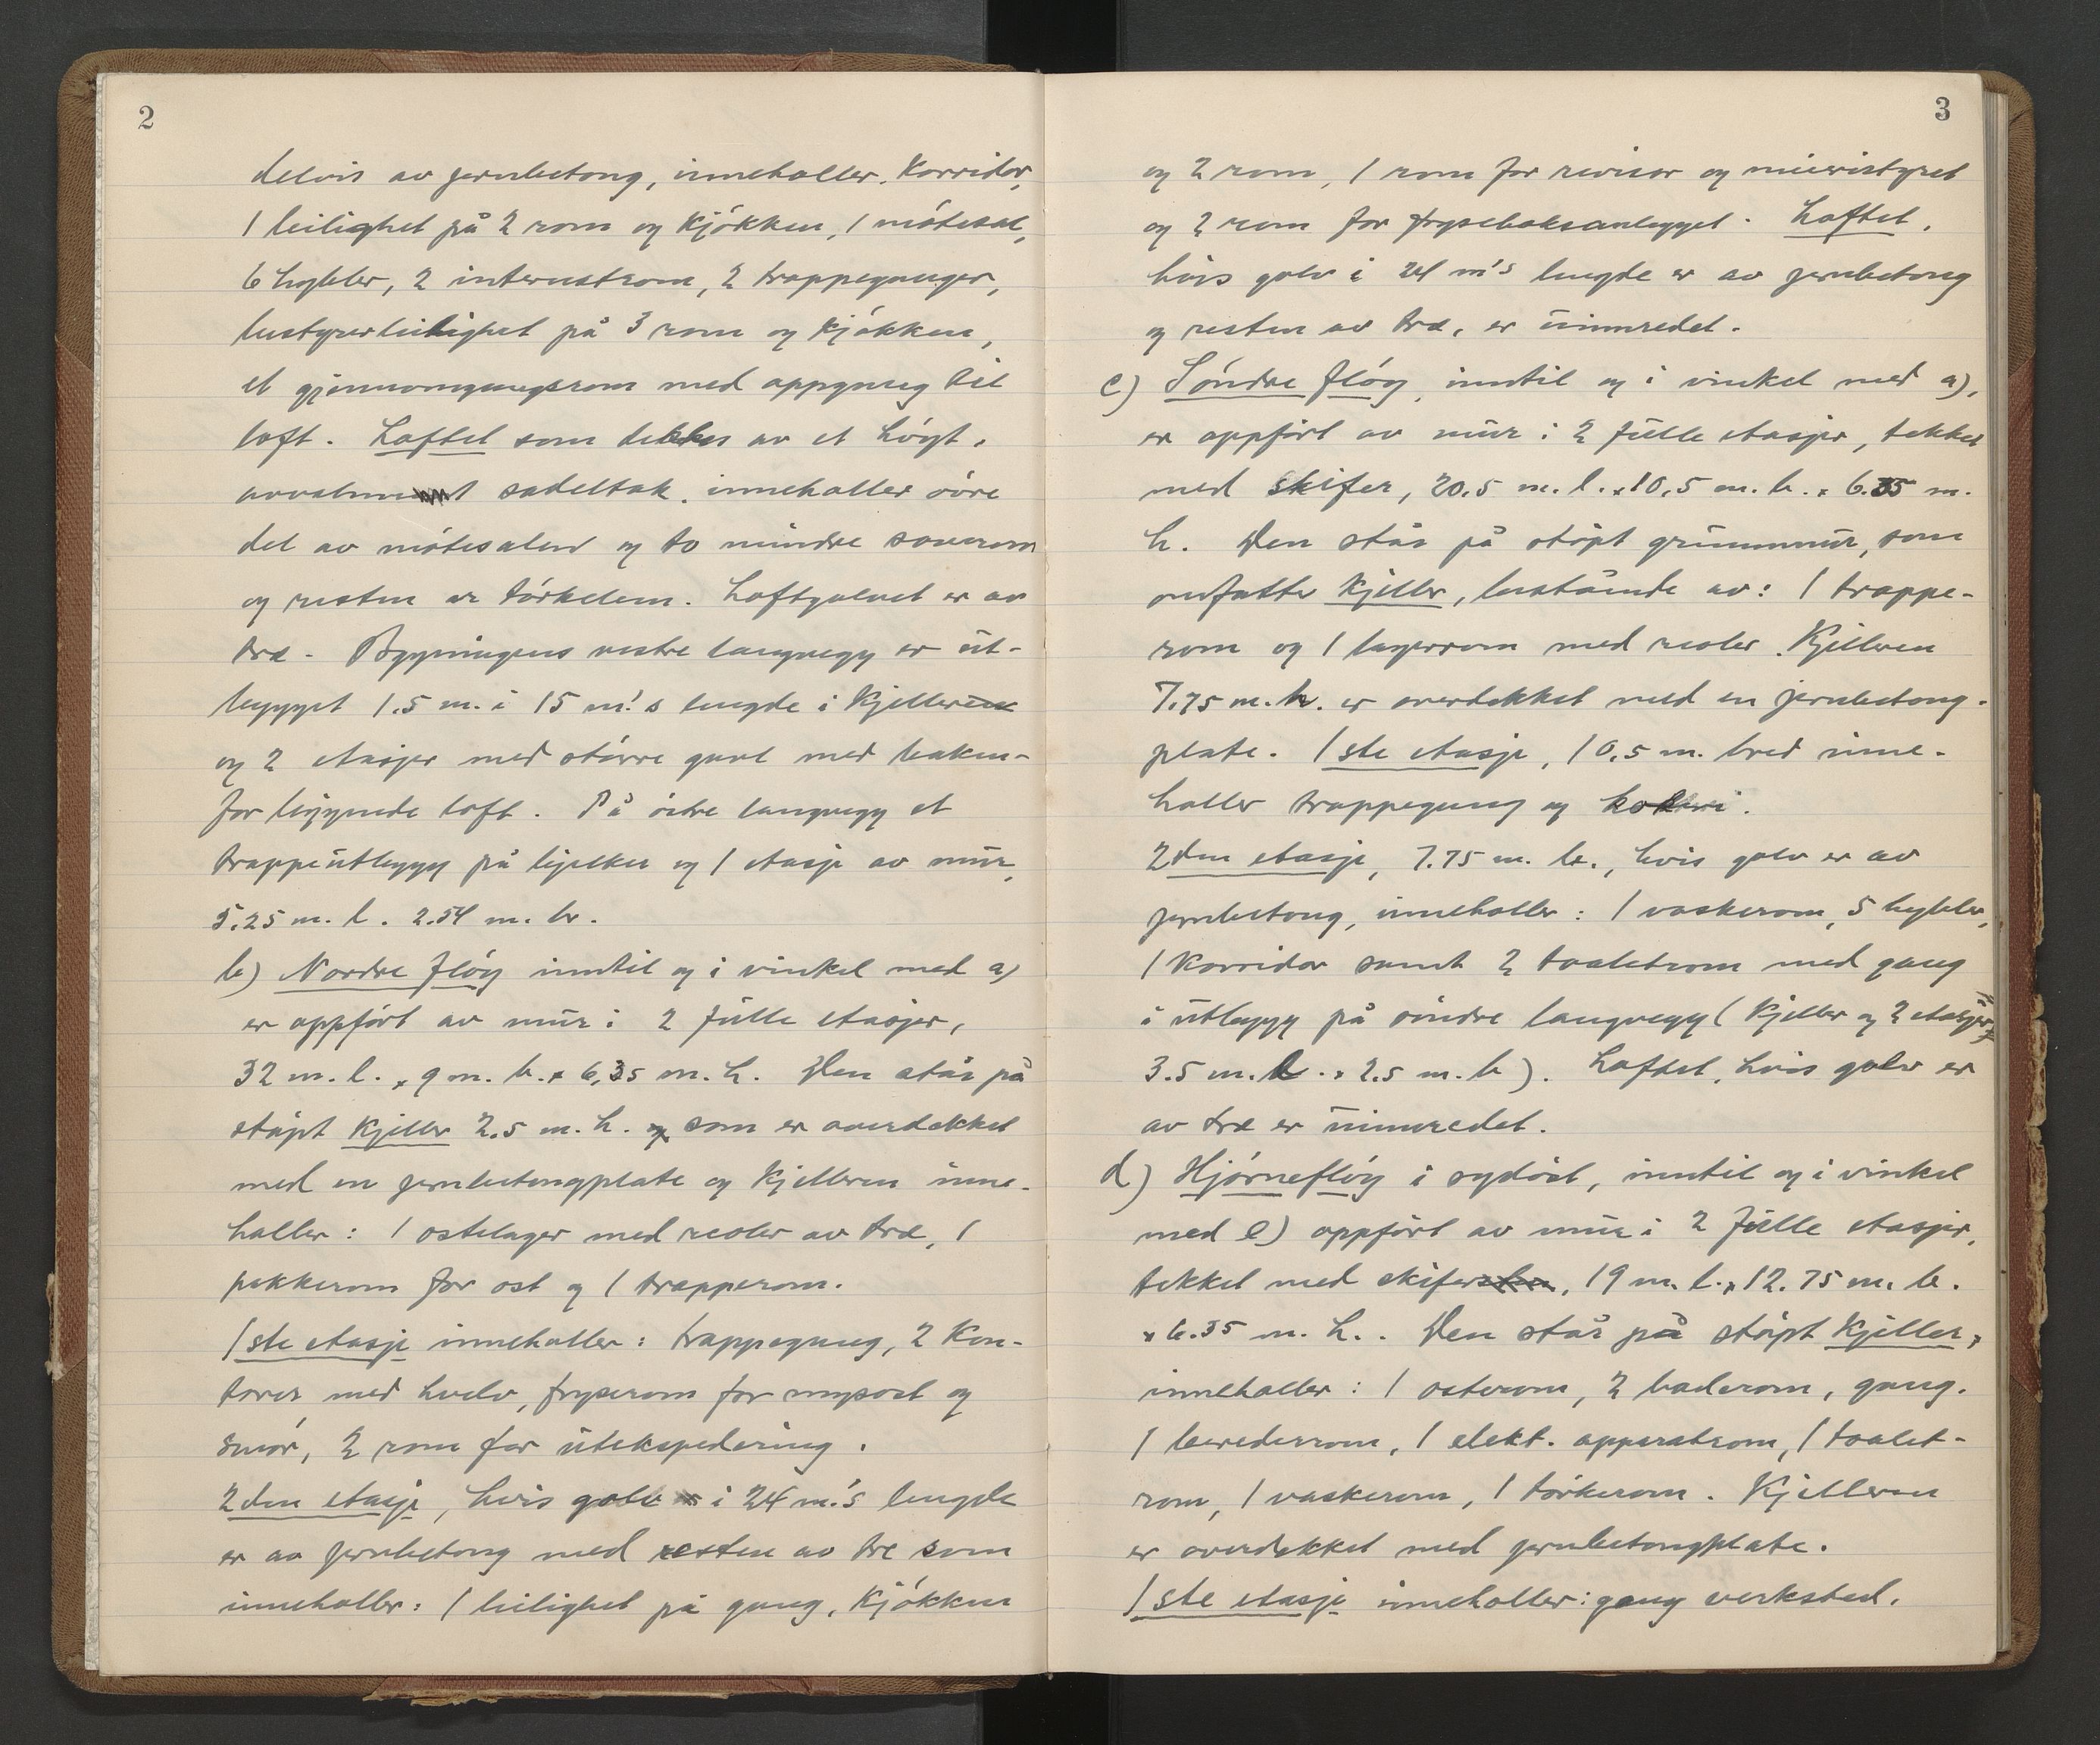 2
delvis av jernbetong, inneholler. Korridor,
1 leilighet på 2 rom og kjökken, 1 mötesal,
6 hybler, 2 internatrom, 2 trappeganger,
bestyrerleilighet på 3 rom og kjökken,
et gjennomgangsrom med oppgang til
loft. Loftet som dekkes av et högt,
avvalmet sadeltak, inneholler övre
del av mötesalen og to mindre soverom
og resten er törkelem. Loftgolvet er av
træ. Bygningens vestre langvegg er ut-
bygget 1.5 m. i 15 m's lengde i kjelleren
og 2 etasjer med större gavl med baken-
for liggende loft. På östre langvegg et
trappeutbygg på kjeller og 1 etasje av mur,
5.25 m. l. 2.54 m. br.
b) Nordre flöy inntil og i vinkel med a)
er oppfört av mur i 2 fulle etasjer,
32 m. l. x 9 m. b. x 6,35 m. h. Den står på
stöpt kjeller 2.5 m. h. som er overdekket
med en jernbetongplate og kjelleren inne-
holler: 1 ostelager med reoler av træ, 1
pakkerom for ost og 1 trapperom.
1ste etasje inneholler: trappegang, 2 kon-
torer med hvelv, fryserom for mysost og
smör, 2 rom for utekspedering.
2den etasje, hvis golv i 24 m.'s lengde
er av jernbetong med resten av tre som
inneholler: 1 leilighet på gang, kjökken
3
og 2 rom, 1 rom for revisor og meieristyret
og 2 rom for fryseboksanlegget. Loftet,
hvis golv i 24 m's lengde er av jernbetong
og resten av træ, er uinnredet.
c) Söndre flöy, inntil og i vinkel med a),
er oppfört av mur i 2 fulle etasjer, tekket
med skifer, 20.5 m. l. x 10.5 m. b. x 6.35 m.
h. Den står på stöpt grunnmur, som
omfatter kjeller, bestående av: 1 trappe-
rom og 1 lagerrom med reoler. Kjelleren
7.75 m. b. er overdekket med en jernbetong-
plate. 1ste etasje, 10.5 m. bred inne-
holler trappegang og kokeri.
2den etasje, 7.75 m. b., hvis golv er av
jernbetong, inneholler: 1 vaskerom, 5 hybler,
1 korridor samt 2 toaletrom med gang
i utbygg på söndre langvegg (kjeller og 2 etasjer,
3.5 m. l. x 2.5 m. b). Loftet, hvis golv er
av træ er uinnredet.
d) Hjörneflöy i sydöst, inntil og i vinkel
med e) oppfört av mur i 2 fulle etasjer,
tekket med skifer, 19 m. l. x 12.75 m. b.
x 6.35 m. h.. Den står på stöpt kjeller,
inneholler: 1 osterom, 2 baderom, gang.
1 berederrom, 1 elekt. apparatrom, 1 toalet-
rom, 1 vaskerom, 1 törkerom. Kjelleren
er overdekket med jernbetongplate.
1ste etasje inneholler: gang verksted,